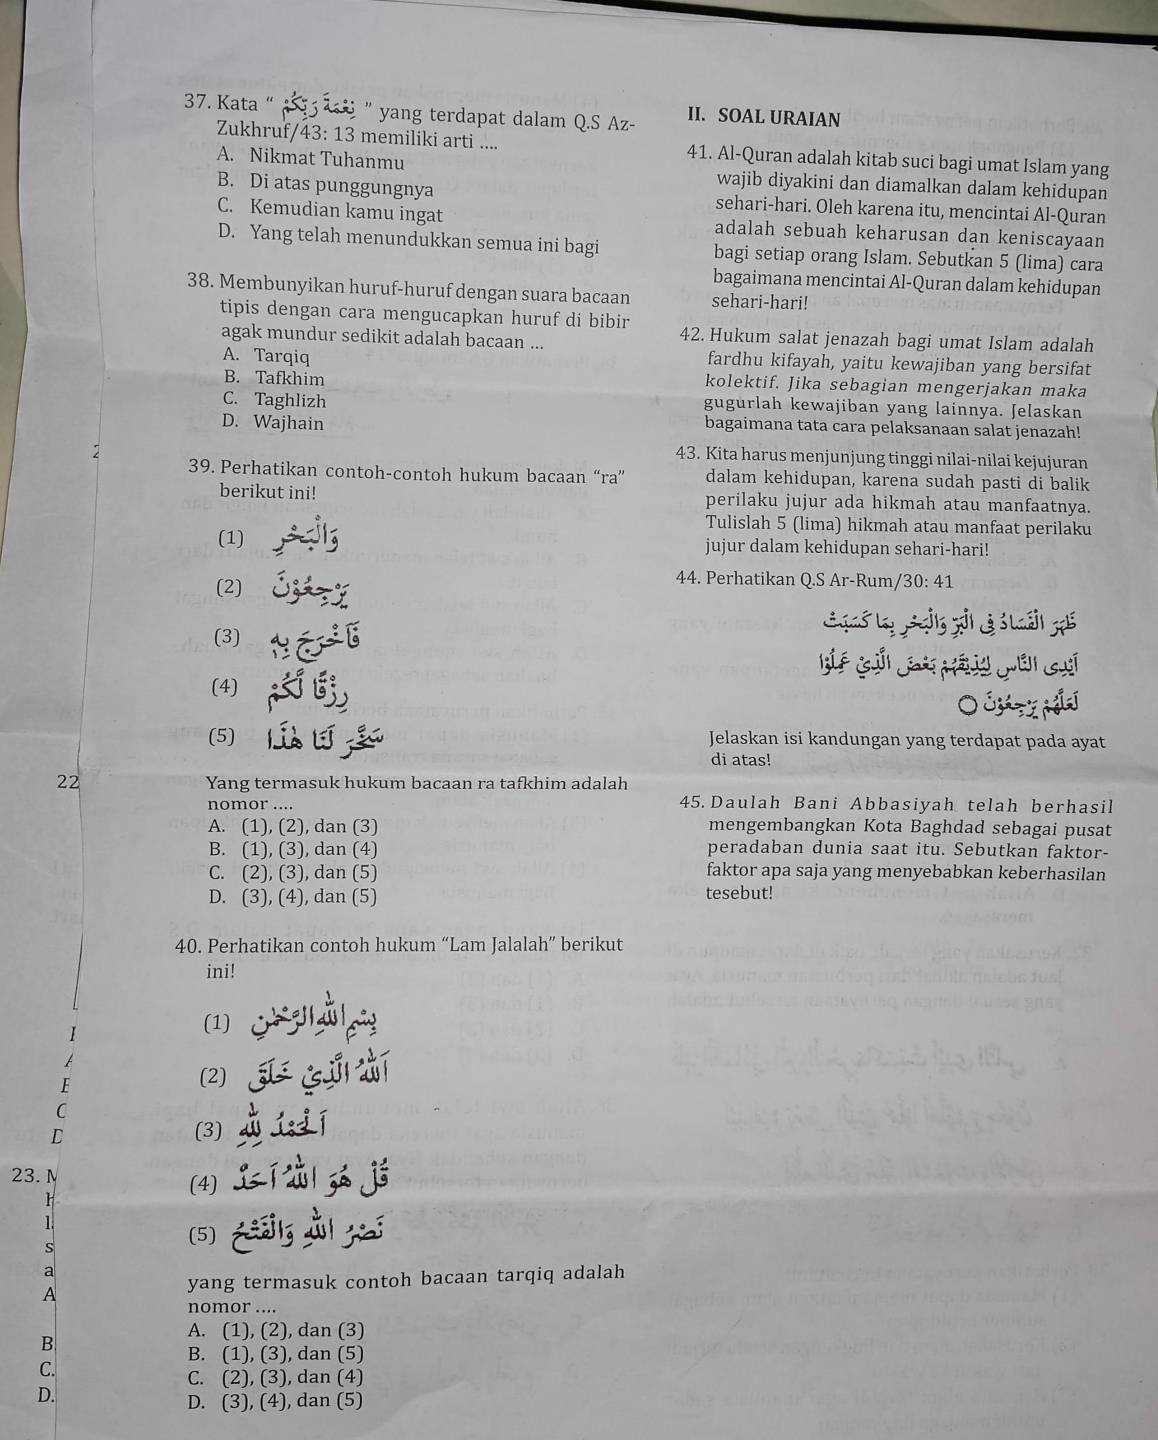 37. Kata “ نِعْمَةَ رَبِّكُمْ ” yang terdapat dalam Q.S Az-
Zukhruf/43: 13 memiliki arti ....
A. Nikmat Tuhanmu
B. Di atas punggungnya
C. Kemudian kamu ingat
D. Yang telah menundukkan semua ini bagi
38. Membunyikan huruf-huruf dengan suara bacaan
tipis dengan cara mengucapkan huruf di bibir
agak mundur sedikit adalah bacaan ...
A. Tarqiq
B. Tafkhim
C. Taghlizh
D. Wajhain
39. Perhatikan contoh-contoh hukum bacaan “ra”
berikut ini!
(1) وَالْبَحْرِ
(2) يَرْجِعُوْنَ
(3) فَاَخْرَجَ بِهٖ
(4) رِزْقًا لَّكُمْ
(5) سَخَّرَ لَنَا هٰذَا
Yang termasuk hukum bacaan ra tafkhim adalah
nomor ....
A. (1), (2), dan (3)
B. (1), (3), dan (4)
C. (2), (3), dan (5)
D. (3), (4), dan (5)
40. Perhatikan contoh hukum “Lam Jalalah” berikut
ini!
(1) بِسْمِ اللّٰهِ الرَّحْمٰنِ
(2) اَللّٰهُ الَّذِيْ خَلَقَ
(3) اَلْحَمْدُ لِلّٰهِ
(4) قُلْ هُوَ اللّٰهُ اَحَدٌ
(5) نَصْرُ اللّٰهِ وَالْفَتْحُ
yang termasuk contoh bacaan tarqiq adalah
nomor ....
A. (1), (2), dan (3)
B. (1), (3), dan (5)
C. (2), (3), dan (4)
D. (3), (4), dan (5)
II. SOAL URAIAN
41. Al-Quran adalah kitab suci bagi umat Islam yang
wajib diyakini dan diamalkan dalam kehidupan
sehari-hari. Oleh karena itu, mencintai Al-Quran
adalah sebuah keharusan dan keniscayaan
bagi setiap orang Islam. Sebutkan 5 (lima) cara
bagaimana mencintai Al-Quran dalam kehidupan
sehari-hari!
42. Hukum salat jenazah bagi umat Islam adalah
fardhu kifayah, yaitu kewajiban yang bersifat
kolektif. Jika sebagian mengerjakan maka
gugurlah kewajiban yang lainnya. Jelaskan
bagaimana tata cara pelaksanaan salat jenazah!
43. Kita harus menjunjung tinggi nilai-nilai kejujuran
dalam kehidupan, karena sudah pasti di balik
perilaku jujur ada hikmah atau manfaatnya.
Tulislah 5 (lima) hikmah atau manfaat perilaku
jujur dalam kehidupan sehari-hari!
44. Perhatikan Q.S Ar-Rum/30: 41
ظَهَرَ الْفَسَادُ فِى الْبَرِّ وَالْبَحْرِ بِمَا كَسَبَتْ
اَيْدِى النَّاسِ لِيُذِيْقَهُمْ بَعْضَ الَّذِيْ عَمِلُوْا
لَعَلَّهُمْ يَرْجِعُوْنَ ○
Jelaskan isi kandungan yang terdapat pada ayat
di atas!
45. Daulah Bani Abbasiyah telah berhasil
mengembangkan Kota Baghdad sebagai pusat
peradaban dunia saat itu. Sebutkan faktor-
faktor apa saja yang menyebabkan keberhasilan
tesebut!
22
23. M
B.
C.
D.